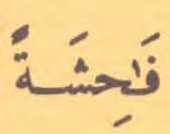 فَٰحِشَةً